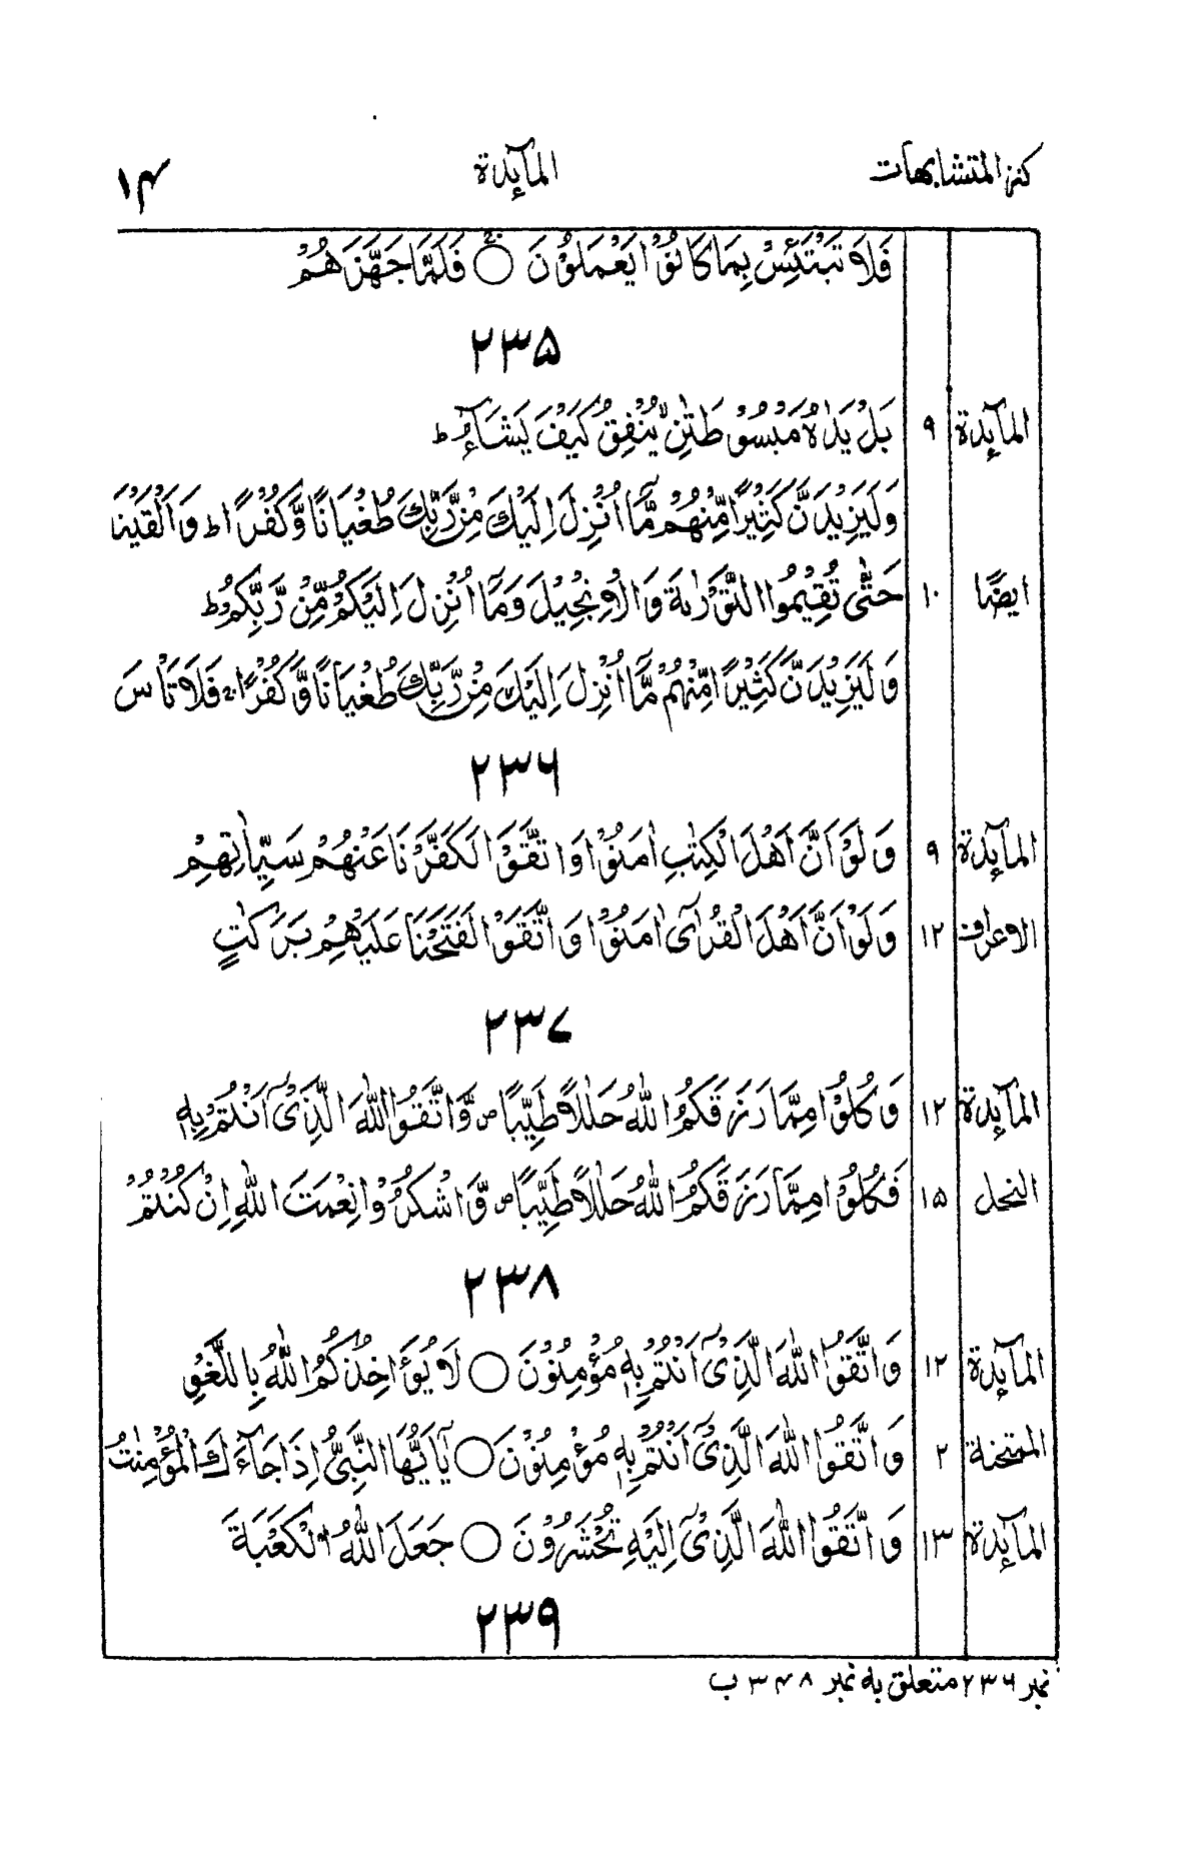 كنز المتشابهات المآئدة ۱۴
فَلَا تَبْتَئِسْ بِمَا كَانُوْا يَعْمَلُوْنَ ○ فَلَمَّا جَهَّزَهُمْ
۲۳۵
المآئدة ۹ بَلْ يَدٰهُ مَبْسُوْطَتٰنِ يُنْفِقُ كَيْفَ يَشَآءُ ط
وَلَيَزِيْدَنَّ كَثِيْرًا مِّنْهُمْ مَّآ اُنْزِلَ اِلَيْكَ مِنْ رَّبِّكَ طُغْيَانًا وَّكُفْرًا ط وَاَلْقَيْنَا
ايضًا ۱۰ حَتّٰى تُقِيْمُوا التَّوْرٰىةَ وَالْاِنْجِيْلَ وَمَآ اُنْزِلَ اِلَيْكُمْ مِّنْ رَّبِّكُمْ ط
وَلَيَزِيْدَنَّ كَثِيْرًا مِّنْهُمْ مَّآ اُنْزِلَ اِلَيْكَ مِنْ رَّبِّكَ طُغْيَانًا وَّكُفْرًا ج فَلَا تَاْسَ
۲۳۶
المآئدة ۹ وَلَوْ اَنَّ اَهْلَ الْكِتٰبِ اٰمَنُوْا وَاتَّقَوْا لَكَفَّرْنَا عَنْهُمْ سَيِّاٰتِهِمْ
الاعراف ۱۲ وَلَوْ اَنَّ اَهْلَ الْقُرٰٓى اٰمَنُوْا وَاتَّقَوْا لَفَتَحْنَا عَلَيْهِمْ بَرَكٰتٍ
۲۳۷
المآئدة ۱۲ وَكُلُوْا مِمَّا رَزَقَكُمُ اللّٰهُ حَلٰلًا طَيِّبًا ص وَّاتَّقُوا اللّٰهَ الَّذِىْٓ اَنْتُمْ بِهٖ
النحل ۱۵ فَكُلُوْا مِمَّا رَزَقَكُمُ اللّٰهُ حَلٰلًا طَيِّبًا ص وَّاشْكُرُوْا نِعْمَتَ اللّٰهِ اِنْ كُنْتُمْ
۲۳۸
المآئدة ۱۲ وَاتَّقُوا اللّٰهَ الَّذِىْٓ اَنْتُمْ بِهٖ مُؤْمِنُوْنَ ○ لَا يُؤَاخِذُكُمُ اللّٰهُ بِاللَّغْوِ
الممتحنة ۲ وَاتَّقُوا اللّٰهَ الَّذِىْٓ اَنْتُمْ بِهٖ مُؤْمِنُوْنَ ○ يٰٓاَيُّهَا النَّبِىُّ اِذَا جَآءَكَ الْمُؤْمِنٰتُ
المآئدة ۱۳ وَاتَّقُوا اللّٰهَ الَّذِىْٓ اِلَيْهِ تُحْشَرُوْنَ ○ جَعَلَ اللّٰهُ الْكَعْبَةَ
۲۳۹
نمبر ۲۳۶ متعلق به نمبر ۳۴۸ ب